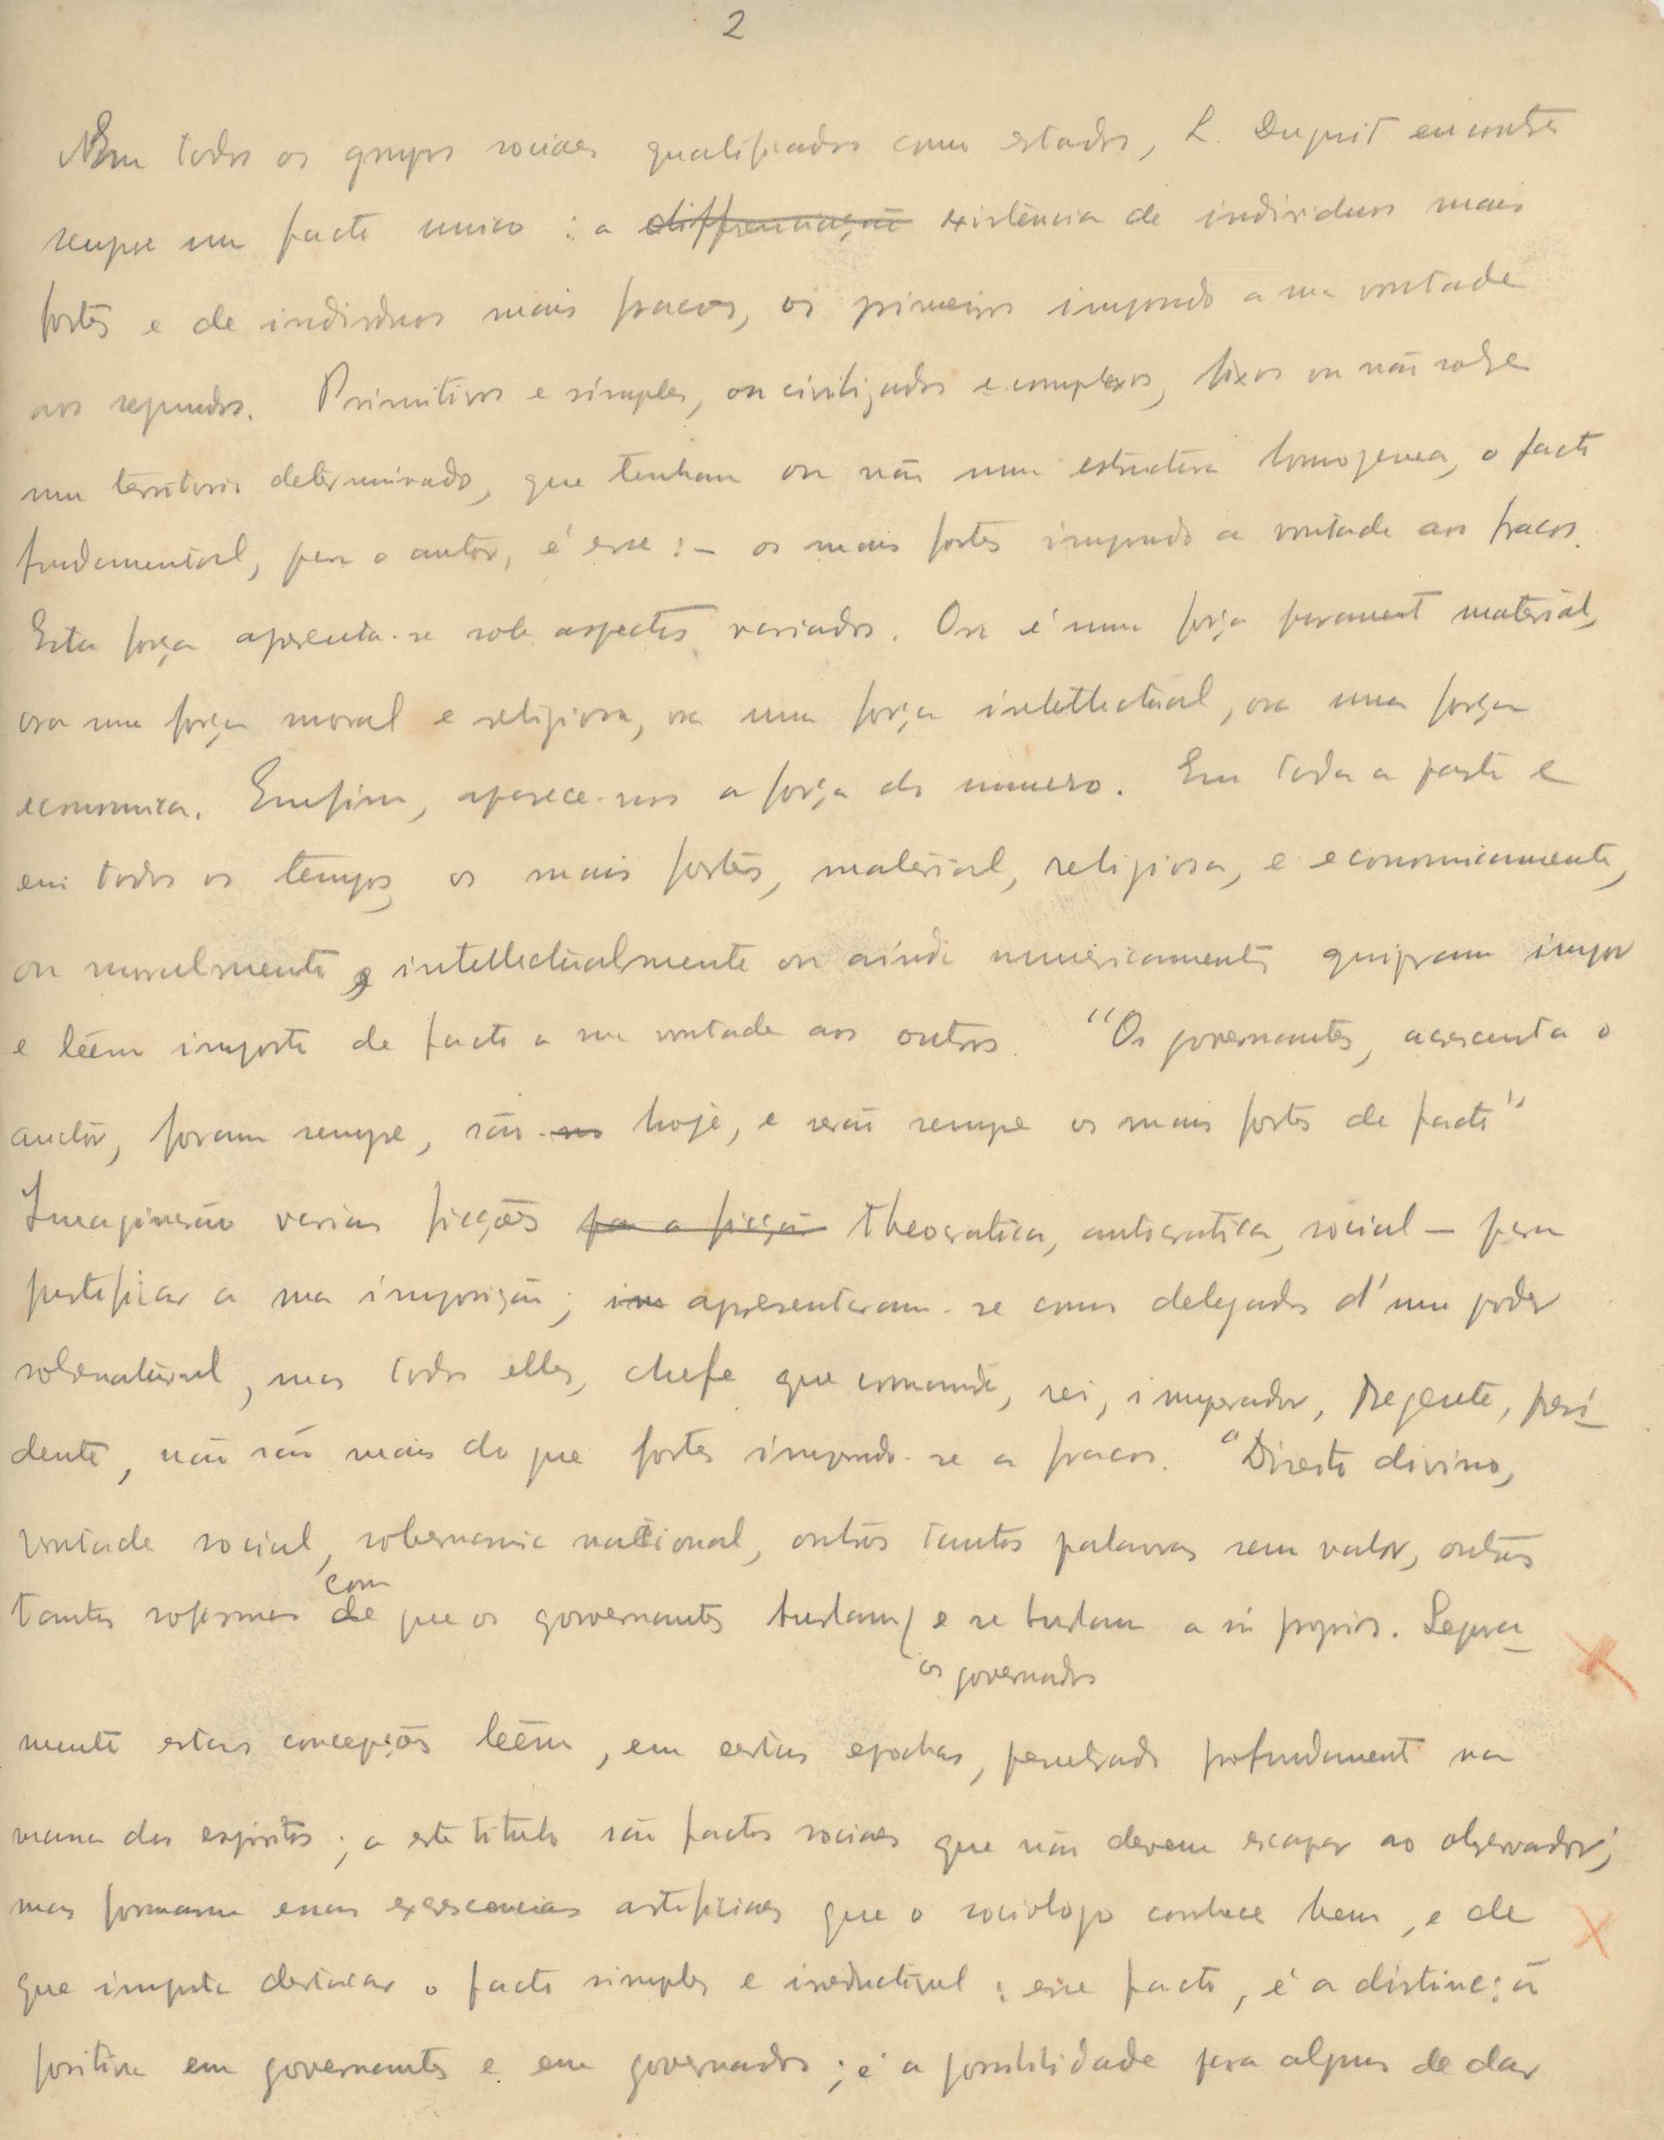 2
Em todos os grupos sociaes qualificados como estados, L. Duguit encontra
sempre um facto unico : a differenciação existencia de individuos mais
fortes e de individuos mais fracos, os primeiros impondo a sua vontade
aos segundos. Primitivos e simples, ou civilizados e complexos, fixos ou não sobre
um territorio determinado, que tenham ou não uma estructura homogenea, o facto
fundamental, para o autor, é esse : – os mais fortes impondo a vontade aos fracos.
Esta força apresenta-se sob aspectos variados. Ora é uma força puramente material,
ora uma força moral e religiosa, ora uma força intellectual, ora uma força
economica. Emfim, aparece-nos a força do numero. Em toda a parte e
em todos os tempos, os mais fortes, material, religiosa, e economicamente,
ou moralmente e intellectualmente ou ainda numericamente quizeram impor
e teem imposto de facto a sua vontade aos outros. "Os governantes, acrescenta o
auctor, foram sempre, são hoje, e serão sempre os mais fortes de facto"
Imaginarão varias ficções – a ficção theocratica, autocratica, social – para
justificar a sua imposição; apresentaram-se como delegados d'um poder
sobrenatural, mas todos elles, chefe que comande, rei, imperador, Regente, presi-
dente, não são mais do que fortes impondo-se a fracos. "Direito divino,
vontade social, soberania nacional, outras tantas palavras sem valor, outros
tantos sofismas com de que os governantes iludam e se iludam a si proprios. Segura-
os governados
mente estas concepções teem, em certas epochas, penetrado profundamente na
massa dos espiritos; a este titulo são factos sociaes que não devem escapar ao observador;
mas formam essas excrescencias artificiaes que o sociologo conhece bem, e de
que importa destacar o facto simples e irreductivel : esse facto, é a distincção
positiva em governantes e em governados ; é a possibilidade para alguns de dar